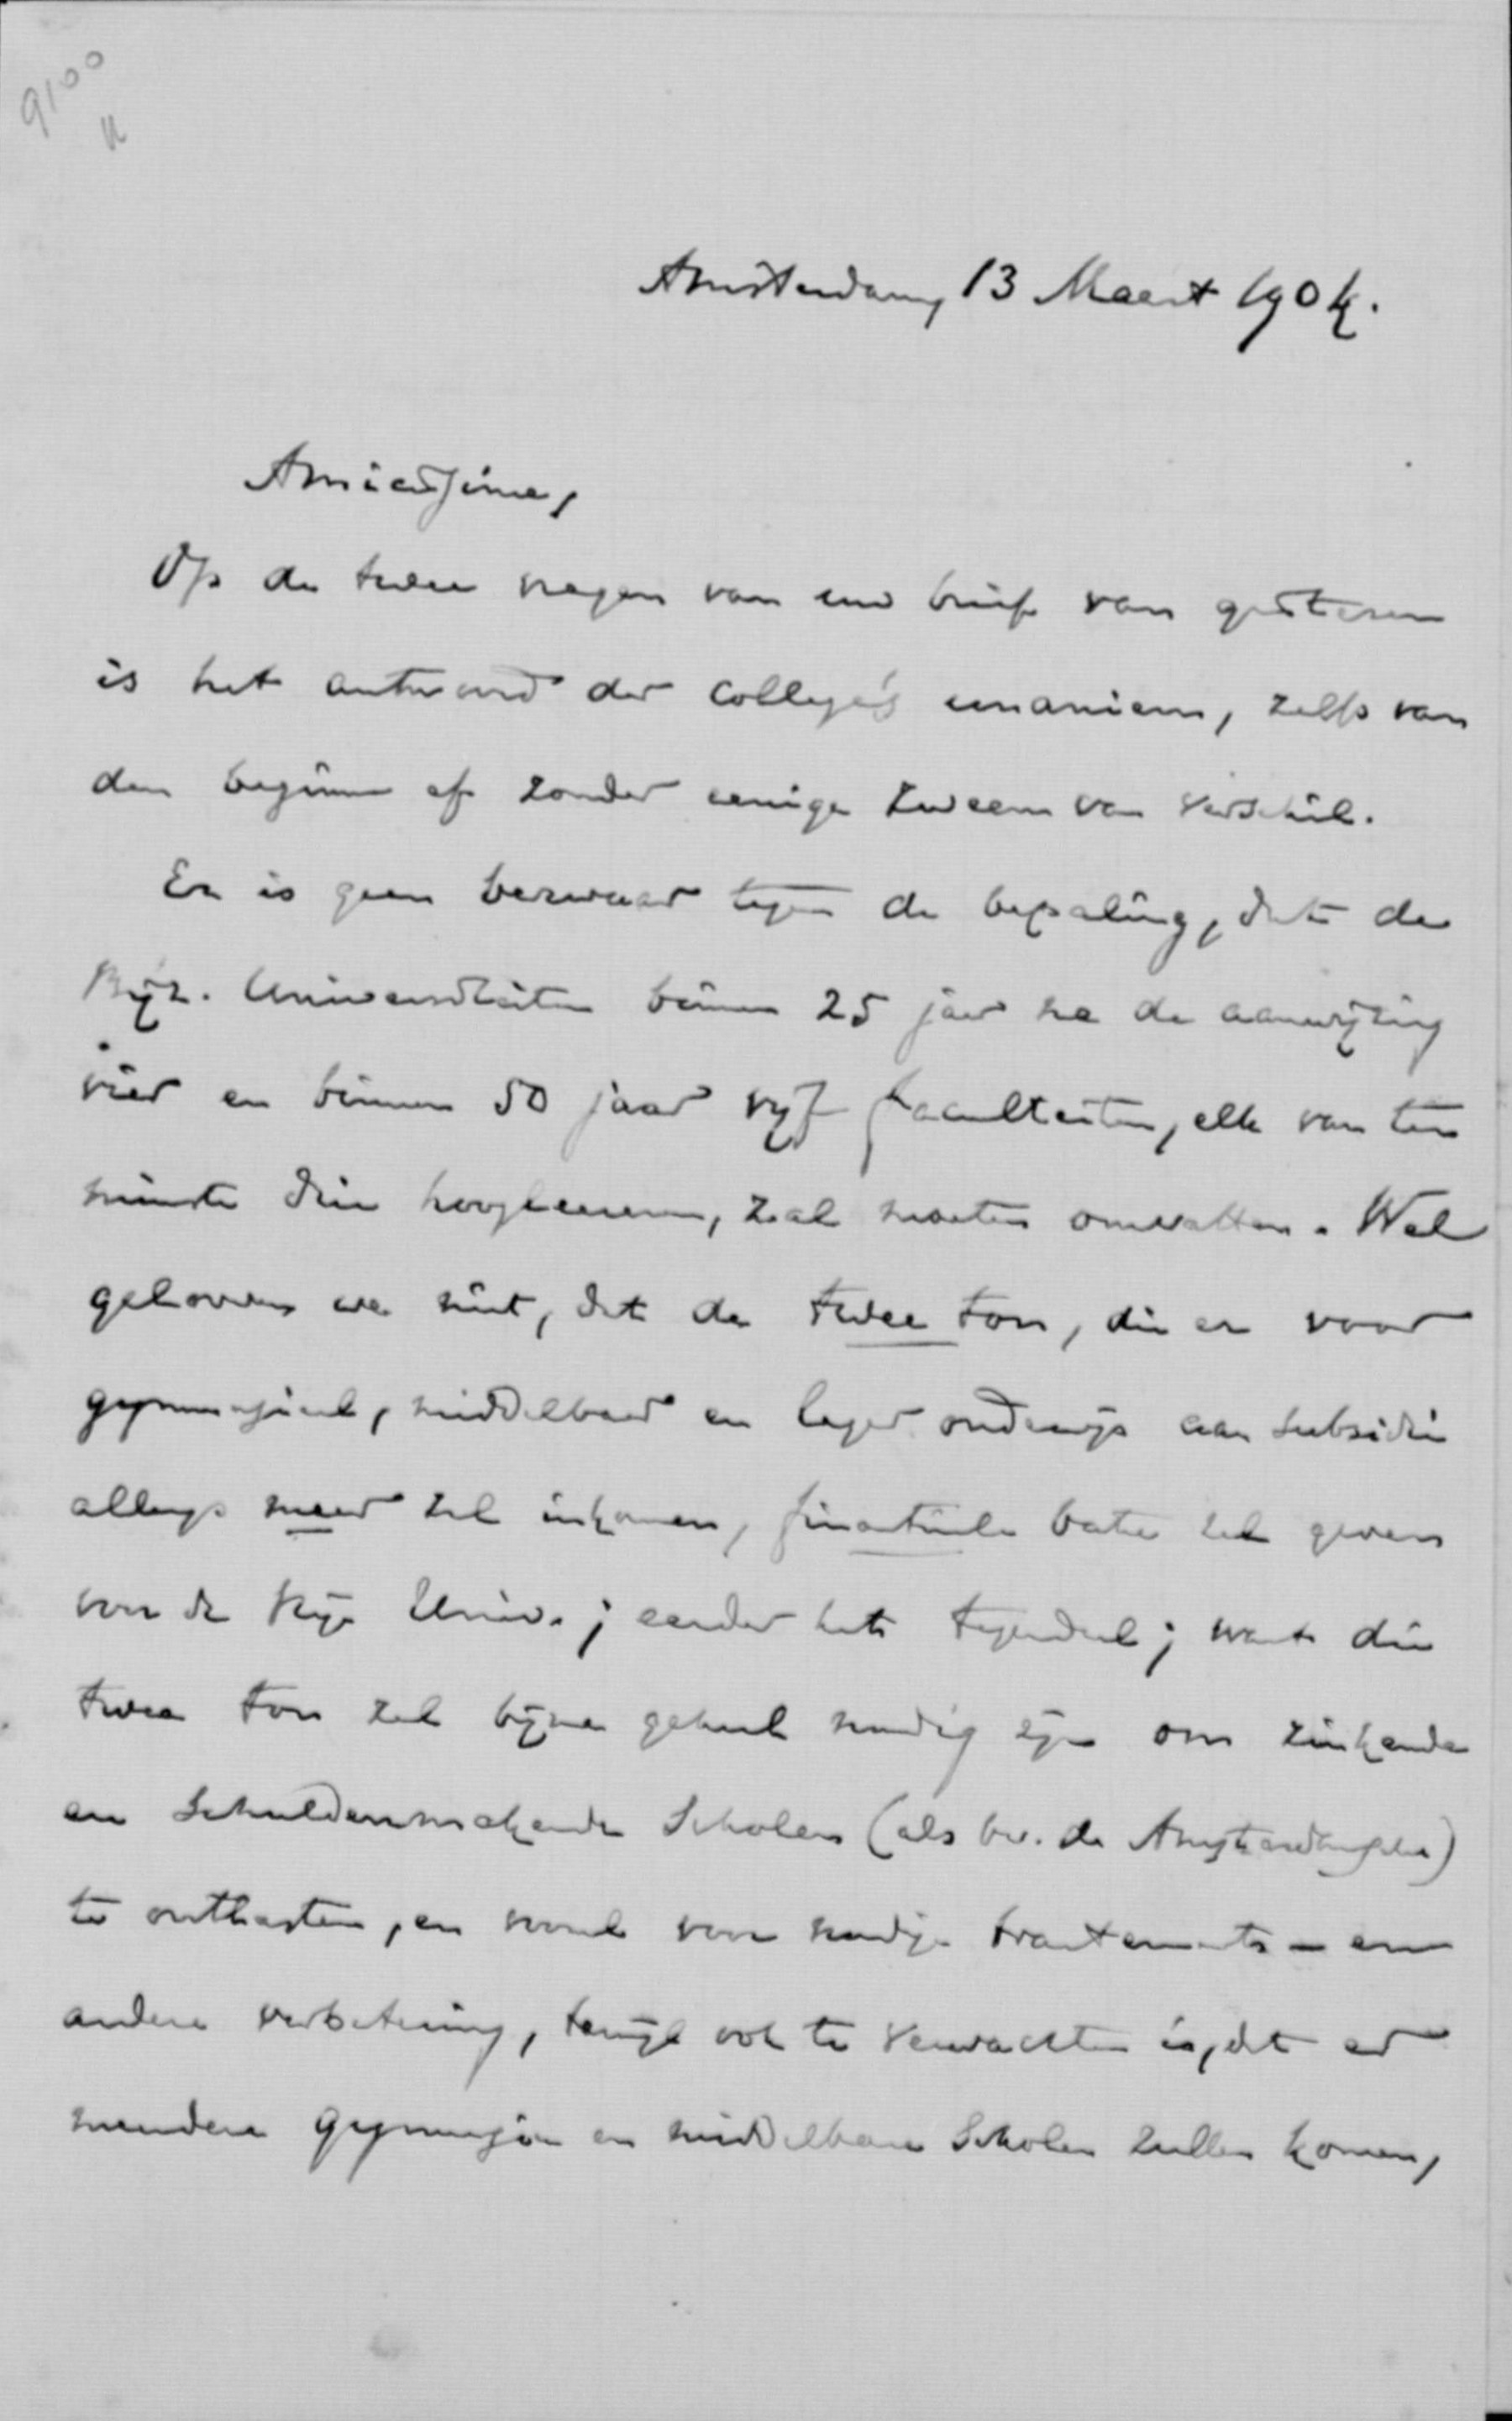 9100
Amsterdam, 13 Maart 1904.
Amicissime,
Op de twee vragen van uw brief van gisteren
is het antwoord der collega's unaniem, zelfs van
den beginne af zonder eenige zweem van verschil.
Er is geen bezwaar tegen de bepaling, dat de
Bijz. Universiteiten binnen 25 jaar na de aanwijzing
vier en binnen 50 jaar vijf faculteiten, elk van ten
minste drie hoogleeraren, zal moeten omvatten. Wel
gelooven we niet, dat de twee ton, die er voor
gymnasiaal, middelbaar en lager onderwijs aan subsidie
allengs meer zal inkomen, finantiëele bate zal geven
voor de Vrije Univ.; eerder het tegendeel; want die
twee ton zal bijna geheel noodig zijn om zinkende
en schuldenmakende Scholen (als bv. de Amsterdamsche)
te ontlasten, en vooral voor noodige traktements- en
andere verbetering, terwijl ook te verwachten is, dat er
meerdere gymnasia en middelbare Scholen zullen komen,